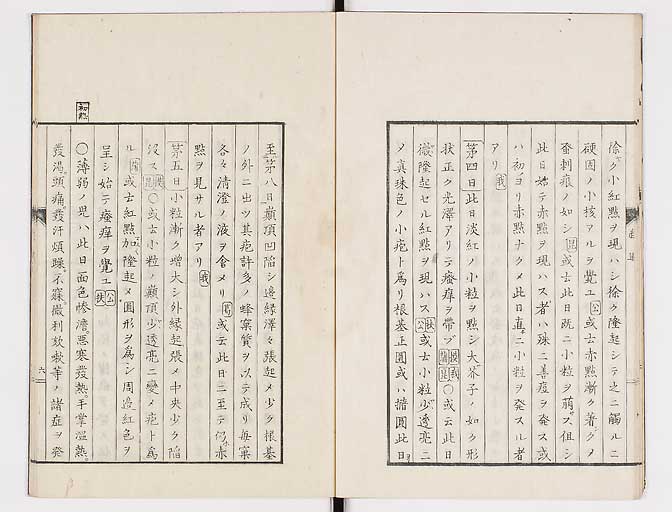 除ク小紅點ヲ現ハシ徐ク隆起シテ之ニ觸ルニ
硬固ノ小核アルヲ覺ユ公或云赤點漸ク著クメ
蚤刺痕ノ如シ 或云此日既ニ小粒ヲ萠ス但シ
此日始テ赤點ヲ現ハス者ハ殊ニ善痘ヲ発ス或
ハ初ヨリ赤點ナクメ此日直ニ小粒ヲ発スル者
アリ我
第四日此日淡紅ノ小粒ヲ點シ大芥子ノ如ク形
状正ク光澤アリテ瘙痒ヲ帶ブ 〇或云此日
微隆起セル紅點ヲ現ハス 公或云小粒少透亮ニ
ノ真珠色ノ小疱ト為リ根基正圓或ハ撱圓此日
至第八日巓頂凹陷シ邊縁澤々張起メ少ク根基
ノ外ニ出ツ其疱許多ノ蜂窠質ヲ以テ成リ每窠
各々清澄ノ液ヲ含メリ 或云此日ニ至テ仍赤
點ヲ見サル者アリ我
第五日小粒漸ク増大シ外縁起張メ中央少ク陷
没ス 〇或云小粒ノ巓頂少透亮ニ變メ疱ト為
ル 或云紅點加隆起メ圓形ヲ為シ周邊紅色ヲ
呈シ始テ瘙痒ヲ覺ユ公扶
〇薄弱ノ児ハ此日面色惨澹悪寒發熱手掌溫熱
發渴頭痛發汗煩躁不寐撮利放嗽等ノ諸症ヲ発
六